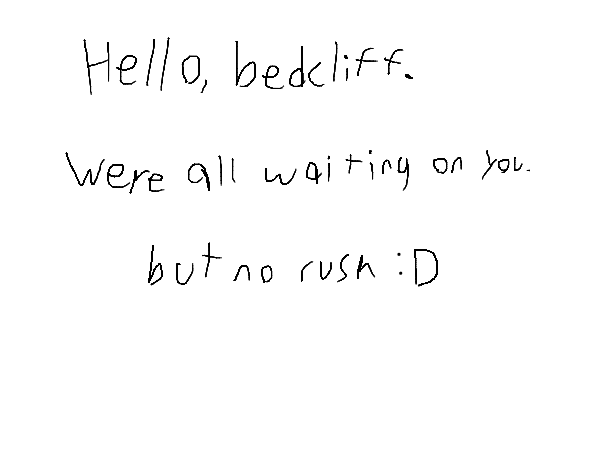 Hello, bedcliff.
Were all waiting on you.
but no rush :D